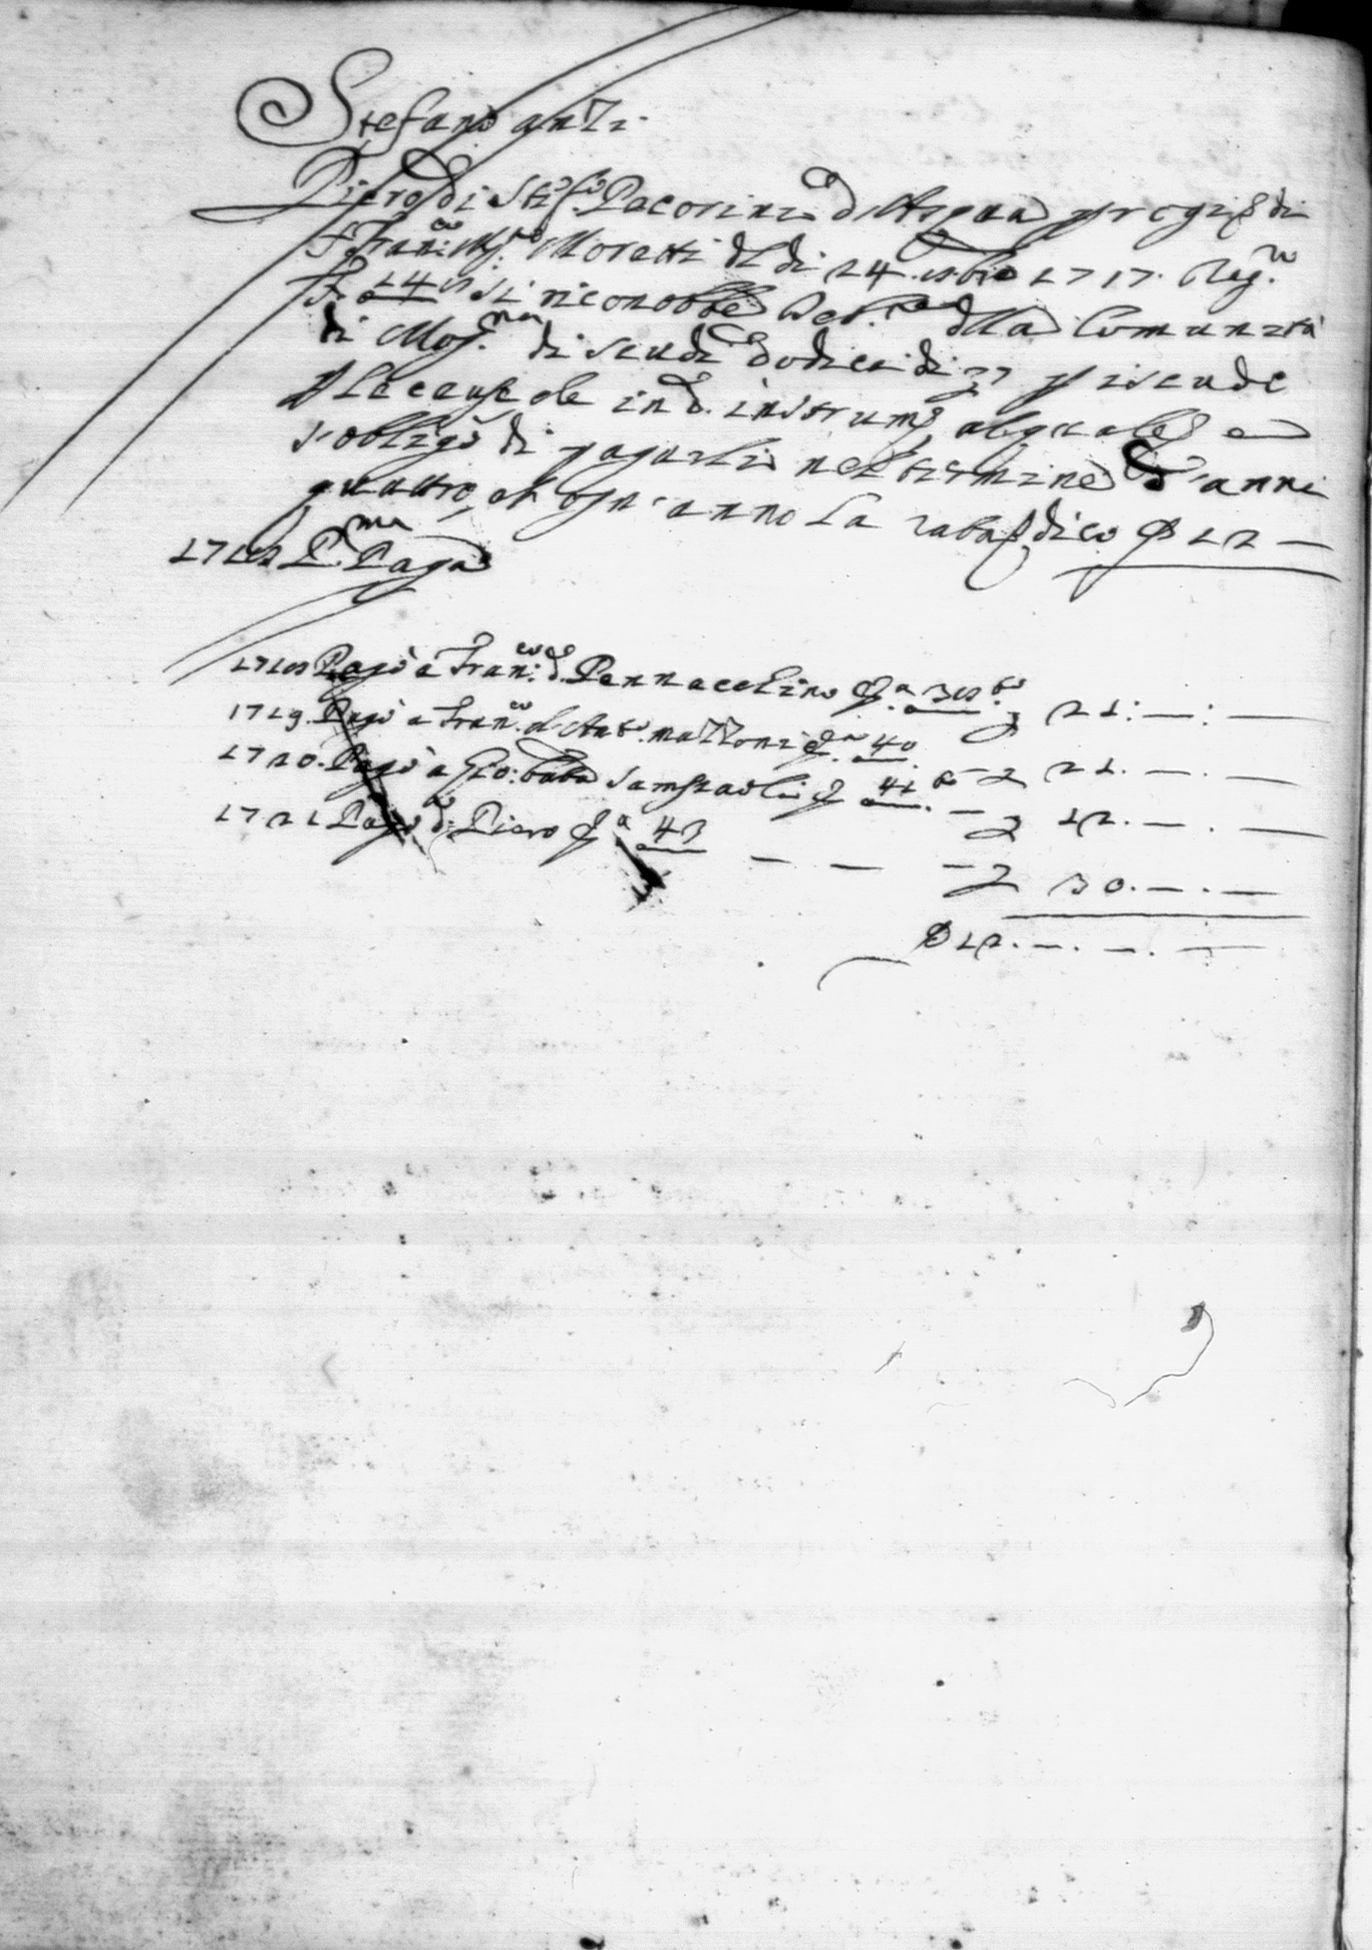 Stefano anzi
Piero di Stef.º Pecorini d'Aqua p rogis di
S. Fran.co M.ª Moretti del di 24. 9bre 1717. Reg.º
F. 14 si riconobbe Deb.re della Comunità
di Mos.na di scudi dodeci di p iscude
p le cause ole in d. instrum. al quale
s'obligò di pagarli nel termine d'anni
quattro, et ogn'anno la rata dico 12 —
1718 P.ma Paga
1718 Pagò a Fran.co d. Pennacchino 38 21: — : —
1719. Pagò a Fran.co d'Ant.º mazzoni 40 21. — . —
1720. Pagò a Gio: batta Sampaoli 41 12. — . —
1721 Pagò d.º Piero 43 — — — 30. — . —
12. — . — . —